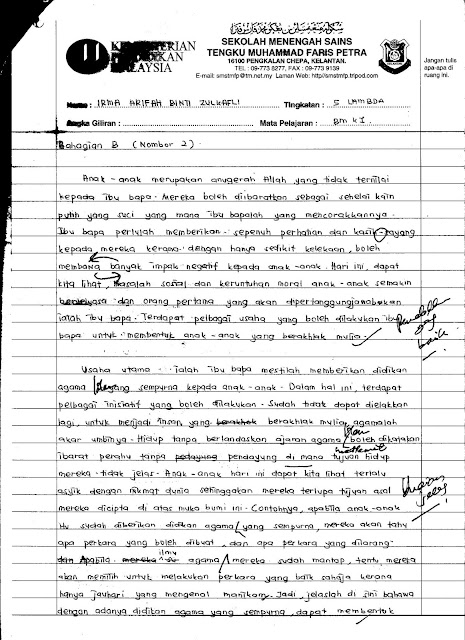 KEMENTERIAN
PENDIDIKAN
MALAYSIA
SEKOLAH MENENGAH SAINS
TENGKU MUHAMMAD FARIS PETRA
16100 PENGKALAN CHEPA, KELANTAN.
TEL : 09-773 8277, FAX : 09-773 9139
E-mail: smstmfp@tm.net.my Laman Web: http://smstmfp.tripod.com
Jangan tulis
apa-apa di
ruang ini.
Nama : IRMA ARIFAH BINTI ZULKAFLI Tingkatan : 5 LAMBDA
Angka Giliran : Mata Pelajaran : BM K1
Bahagian B (Nombor 2)
Anak-anak merupakan anugerah Allah yang tidak ternilai
kepada ibu bapa. Mereka boleh diibaratkan sebagai sehelai kain
putih yang suci yang mana ibu bapalah yang mencorakkannya.
Ibu bapa perlulah memberikan sepenuh perhatian dan kasih sayang
kepada mereka kerana dengan hanya sedikit kelekaan, boleh
membawa banyak impak negatif kepada anak-anak. Hari ini, dapat
kita lihat, masalah sosial dan keruntuhan moral anak-anak semakin
berleluasa dan orang pertama yang akan dipertanggungjawabkan
ialah ibu bapa. Terdapat pelbagai usaha yang boleh dilakukan ibu
bapa untuk membentuk anak-anak yang berakhlak mulia.
Pendahuluan
yg
baik
Usaha utama ialah ibu bapa mestilah memberikan didikan
agama yang sempurna kepada anak-anak. Dalam hal ini, terdapat
pelbagai inisiatif yang boleh dilakukan. Sudah tidak dapat dielakkan
lagi, untuk menjadi insan yang berakhlak mulia, agamalah
akar umbinya. Hidup tanpa berlandaskan ajaran agama boleh dikatakan
ibarat perahu tanpa pendayung di mana tujuan hidup
mereka tidak jelas. Anak-anak hari ini dapat kita lihat terlalu
asyik dengan nikmat dunia sehinggakan mereka terlupa tujuan asal
mereka dicipta di atas muka bumi ini. Contohnya, apabila anak-anak
itu sudah diberikan didikan agama yang sempurna, mereka akan tahu
apa perkara yang boleh dibuat, dan apa perkara yang dilarang.
Huraian
jelas
Apabila ilmu agama mereka sudah mantap, tentu mereka
akan memilih untuk melakukan perkara yang baik sahaja kerana
hanya jauhari yang mengenal manikam. Jadi, jelaslah di sini bahawa
dengan adanya didikan agama yang sempurna, dapat membentuk